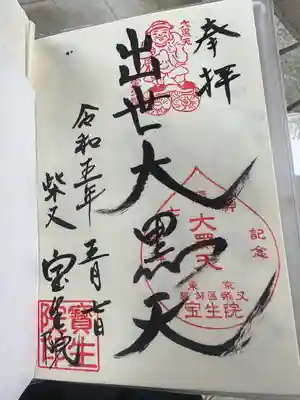 奉拝
大黒天
出世大黒天
記念
大黒天
東京
葛飾区柴又
宝生院
令和五年 五月七日
柴又 宝生院
寶生院印